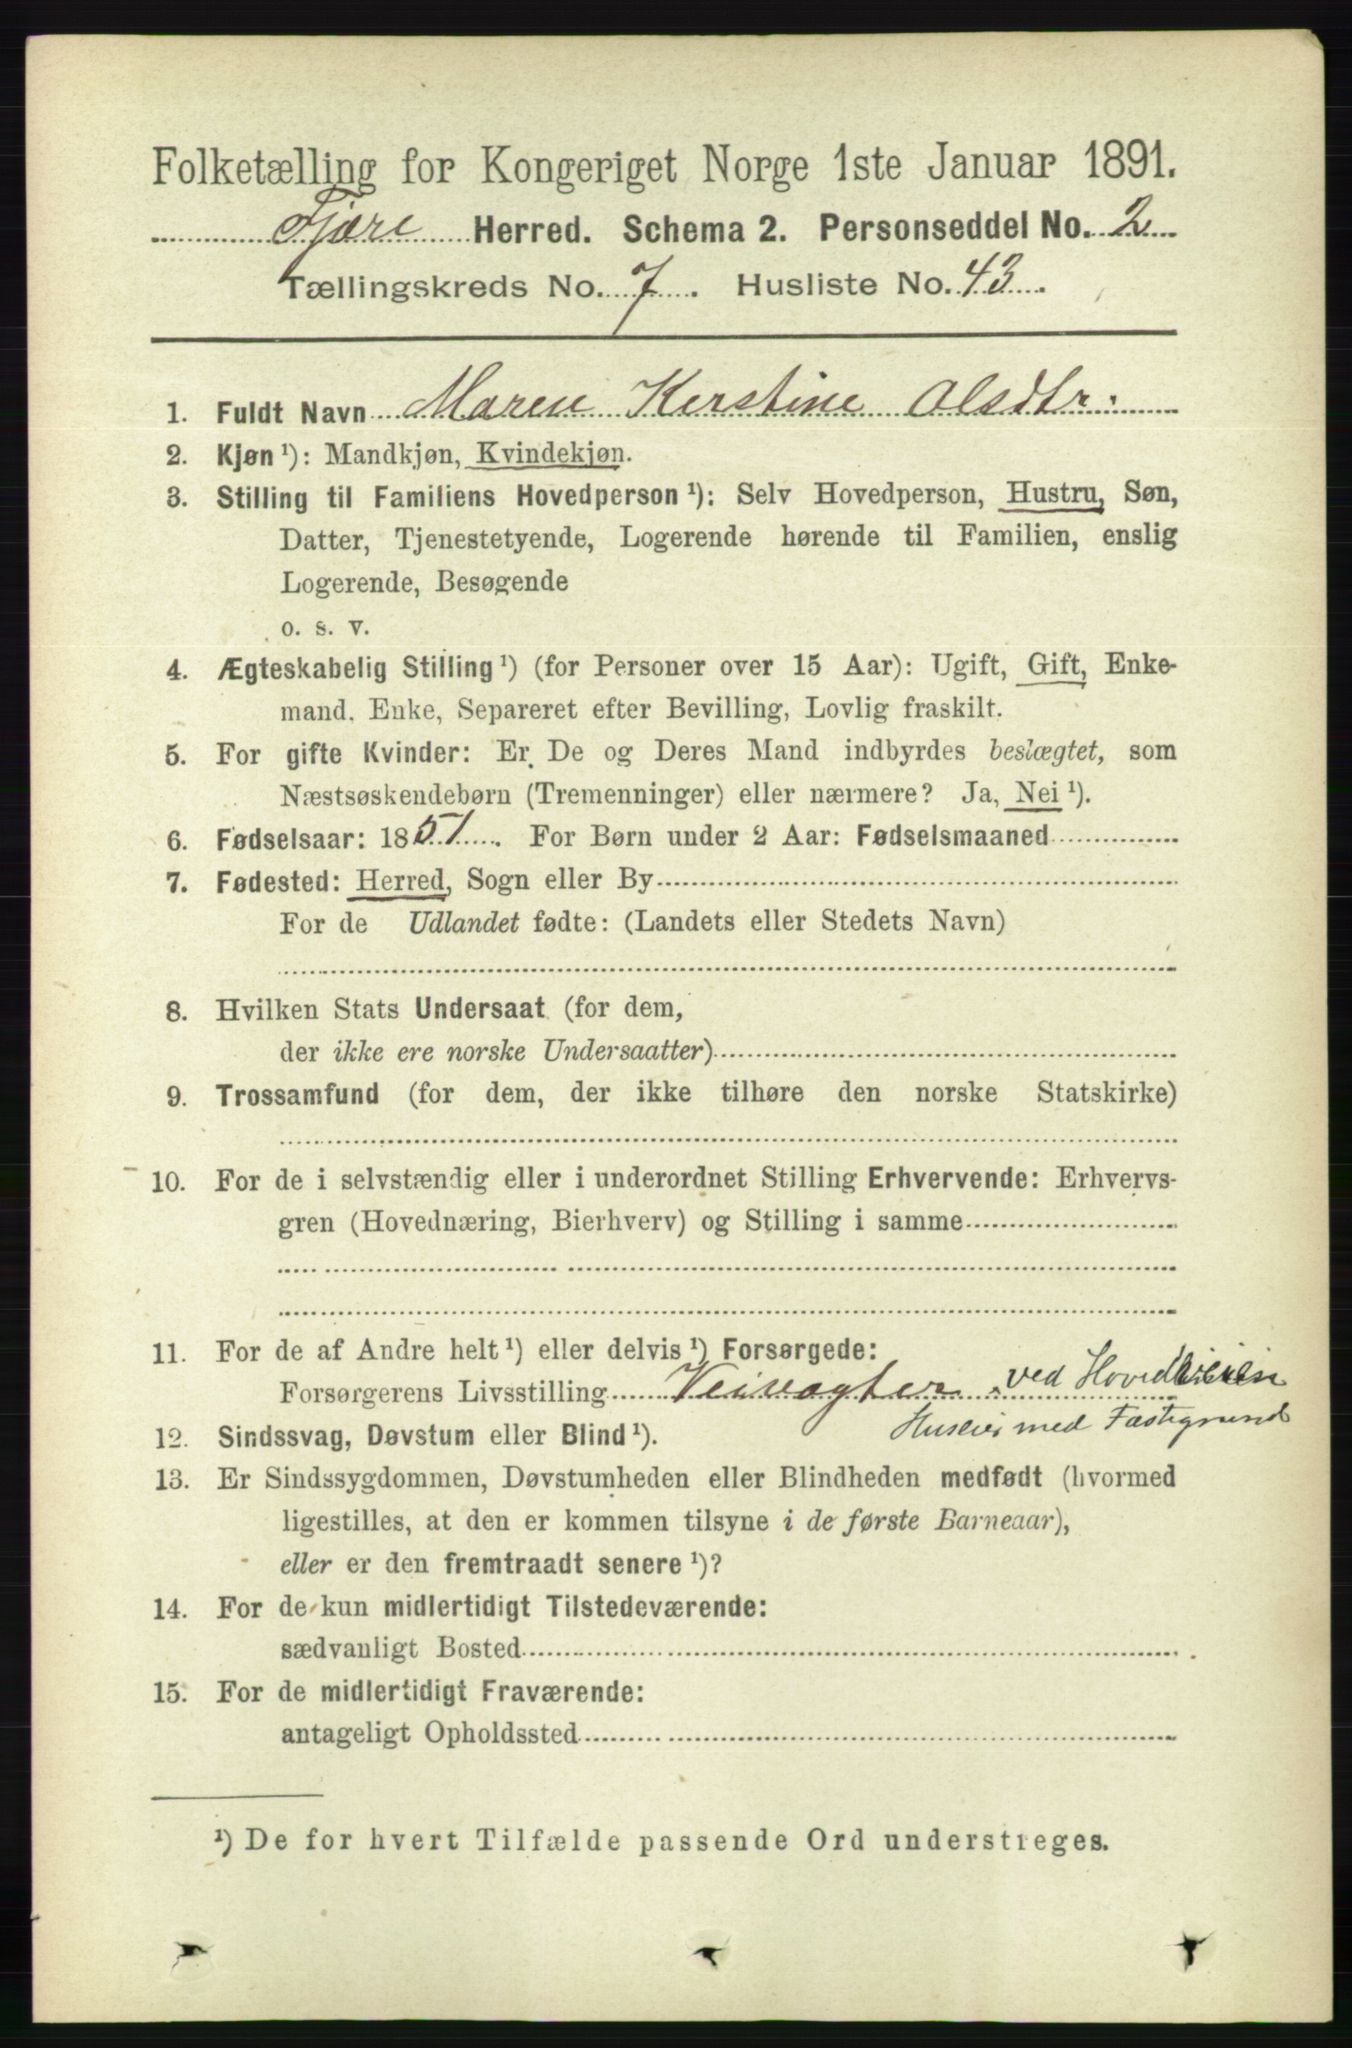 Folketælling for Kongeriget Norge 1ste Januar 1891.
Fjære Herred. Schema 2. Personseddel No. 2
Tællingskreds No. 7. Husliste No. 43.
1. Fuldt Navn Maren Kerstine Olsdtr.
2. Kjøn ¹): Mandkjøn, Kvindekjøn.
3. Stilling til Familiens Hovedperson ¹): Selv Hovedperson, Hustru, Søn,
Datter, Tjenestetyende, Logerende hørende til Familien, enslig
Logerende, Besøgende
o. s. v.
4. Ægteskabelig Stilling ¹) (for Personer over 15 Aar): Ugift, Gift, Enke-
mand, Enke, Separeret efter Bevilling, Lovlig fraskilt.
5. For gifte Kvinder: Er De og Deres Mand indbyrdes beslægtet, som
Næstsøskendebørn (Tremenninger) eller nærmere? Ja, Nei ¹).
6. Fødselsaar: 1851. For Børn under 2 Aar: Fødselsmaaned
7. Fødested: Herred, Sogn eller By
For de Udlandet fødte: (Landets eller Stedets Navn)
8. Hvilken Stats Undersaat (for dem,
der ikke ere norske Undersaatter)
9. Trossamfund (for dem, der ikke tilhøre den norske Statskirke)
10. For de i selvstændig eller i underordnet Stilling Erhvervende: Erhvervs-
gren (Hovednæring, Bierhverv) og Stilling i samme
11. For de af Andre helt ¹) eller delvis ¹) Forsørgede:
Forsørgerens Livsstilling Veivogter ved Hovedveien
Huseier med Fæstegrund
12. Sindssvag, Døvstum eller Blind ¹).
13. Er Sindssygdommen, Døvstumheden eller Blindheden medfødt (hvormed
ligestilles, at den er kommen tilsyne i de første Barneaar),
eller er den fremtraadt senere ¹)?
14. For de kun midlertidigt Tilstedeværende:
sædvanligt Bosted
15. For de midlertidigt Fraværende:
antageligt Opholdssted
¹) De for hvert Tilfælde passende Ord understreges.